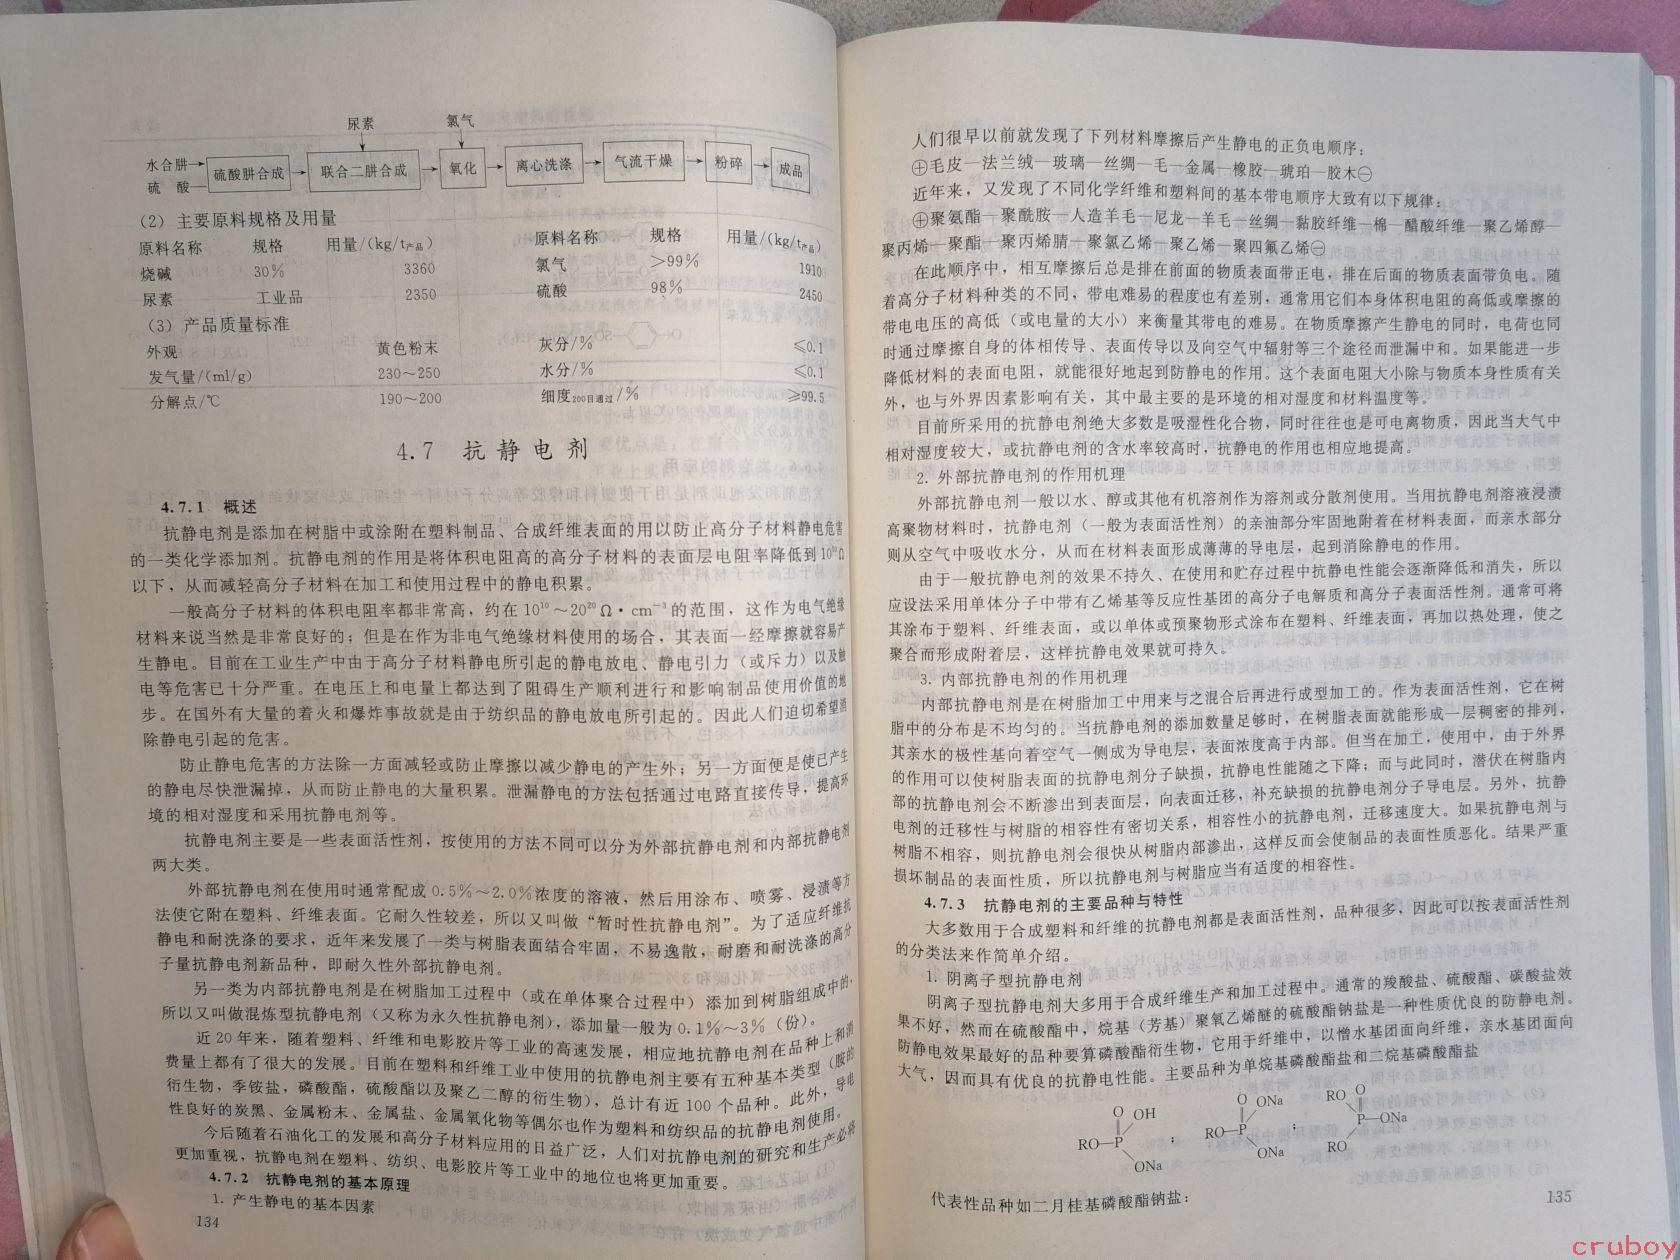 尿素 氯气
水合肼 硫酸肼合成 联合二肼合成 氧化 离心洗涤 气流干燥 粉碎 成品
硫 酸
(2) 主要原料规格及用量
原料名称 规格 用量/(kg/t产品) 原料名称 规格 用量/(kg/t产品)
烧碱 30% 3360 氯气 >99% 1910
尿素 工业品 2350 硫酸 98% 2450
(3) 产品质量标准
外观 黄色粉末 灰分/% ≤0.1
发气量/(ml/g) 230~250 水分/% ≤0.1
分解点/℃ 190~200 细度200目通过/% ≥99.5
4.7 抗静电剂
4.7.1 概述
抗静电剂是添加在树脂中或涂附在塑料制品、合成纤维表面的用以防止高分子材料静电危害
的一类化学添加剂。抗静电剂的作用是将体积电阻高的高分子材料的表面层电阻率降低到 10¹⁰Ω
以下，从而减轻高分子材料在加工和使用过程中的静电积累。
一般高分子材料的体积电阻率都非常高，约在 10¹⁰～20²⁰ Ω·cm⁻³ 的范围，这作为电气绝缘
材料来说当然是非常良好的；但是在作为非电气绝缘材料使用的场合，其表面一经摩擦就容易产
生静电。目前在工业生产中由于高分子材料静电所引起的静电放电、静电引力（或斥力）以及触
电等危害已十分严重。在电压上和电量上都达到了阻碍生产顺利进行和影响制品使用价值的地
步。在国外有大量的着火和爆炸事故就是由于纺织品的静电放电所引起的。因此人们迫切希望消
除静电引起的危害。
防止静电危害的方法除一方面减轻或防止摩擦以减少静电的产生外；另一方面便是使已产生
的静电尽快泄漏掉，从而防止静电的大量积累。泄漏静电的方法包括通过电路直接传导，提高环
境的相对湿度和采用抗静电剂等。
抗静电剂主要是一些表面活性剂，按使用的方法不同可以分为外部抗静电剂和内部抗静电剂
两大类。
外部抗静电剂在使用时通常配成 0.5%～2.0%浓度的溶液，然后用涂布、喷雾、浸渍等方
法使它附在塑料、纤维表面。它耐久性较差，所以又叫做“暂时性抗静电剂”。为了适应纤维抗
静电和耐洗涤的要求，近年来发展了一类与树脂表面结合牢固，不易逸散，耐磨和耐洗涤的高分
子量抗静电剂新品种，即耐久性外部抗静电剂。
另一类为内部抗静电剂是在树脂加工过程中（或在单体聚合过程中）添加到树脂组成中的，
所以又叫做混炼型抗静电剂（又称为永久性抗静电剂），添加量一般为 0.1%～3%（份）。
近 20 年来，随着塑料、纤维和电影胶片等工业的高速发展，相应地抗静电剂在品种上和消
费量上都有了很大的发展。目前在塑料和纤维工业中使用的抗静电剂主要有五种基本类型（胺的
衍生物，季铵盐，磷酸酯，硫酸酯以及聚乙二醇的衍生物），总计有近 100 个品种。此外，导电
性良好的炭黑、金属粉末、金属盐、金属氧化物等偶尔也作为塑料和纺织品的抗静电剂使用。
今后随着石油化工的发展和高分子材料应用的日益广泛，人们对抗静电剂的研究和生产必将
更加重视，抗静电剂在塑料、纺织、电影胶片等工业中的地位也将更加重要。
4.7.2 抗静电剂的基本原理
1. 产生静电的基本因素
134
人们很早以前就发现了下列材料摩擦后产生静电的正负电顺序：
⊕毛皮—法兰绒—玻璃—丝绸—毛—金属—橡胶—琥珀—胶木⊖
近年来，又发现了不同化学纤维和塑料间的基本带电顺序大致有以下规律：
⊕聚氨酯—聚酰胺—人造羊毛—尼龙—羊毛—丝绸—黏胶纤维—棉—醋酸纤维—聚乙烯醇—
聚丙烯—聚酯—聚丙烯腈—聚氯乙烯—聚乙烯—聚四氟乙烯⊖
在此顺序中，相互摩擦后总是排在前面的物质表面带正电，排在后面的物质表面带负电。随
着高分子材料种类的不同，带电难易的程度也有差别，通常用它们本身体积电阻的高低或摩擦的
带电电压的高低（或电量的大小）来衡量其带电的难易。在物质摩擦产生静电的同时，电荷也同
时通过摩擦自身的体相传导、表面传导以及向空气中辐射等三个途径而泄漏中和。如果能进一步
降低材料的表面电阻，就能很好地起到防静电的作用。这个表面电阻大小除与物质本身性质有关
外，也与外界因素影响有关，其中最主要的是环境的相对湿度和材料温度等。
目前所采用的抗静电剂绝大多数是吸湿性化合物，同时往往也是可电离物质，因此当大气中
相对湿度较大，或抗静电剂的含水率较高时，抗静电的作用也相应地提高。
2. 外部抗静电剂的作用机理
外部抗静电剂一般以水、醇或其他有机溶剂作为溶剂或分散剂使用。当用抗静电剂溶液浸渍
高聚物材料时，抗静电剂（一般为表面活性剂）的亲油部分牢固地附着在材料表面，而亲水部分
则从空气中吸收水分，从而在材料表面形成薄薄的导电层，起到消除静电的作用。
由于一般抗静电剂的效果不持久、在使用和贮存过程中抗静电性能会逐渐降低和消失，所以
应设法采用单体分子中带有乙烯基等反应性基团的高分子电解质和高分子表面活性剂。通常可将
其涂布于塑料、纤维表面，或以单体或预聚物形式涂布在塑料、纤维表面，再加以热处理，使之
聚合而形成附着层，这样抗静电效果就可持久。
3. 内部抗静电剂的作用机理
内部抗静电剂是在树脂加工中用来与之混合后再进行成型加工的。作为表面活性剂，它在树
脂中的分布是不均匀的。当抗静电剂的添加数量足够时，在树脂表面就能形成一层稠密的排列，
其亲水的极性基向着空气一侧成为导电层，表面浓度高于内部。但当在加工，使用中，由于外界
的作用可以使树脂表面的抗静电剂分子缺损，抗静电性能随之下降；而与此同时，潜伏在树脂内
部的抗静电剂会不断渗出到表面层，向表面迁移，补充缺损的抗静电剂分子导电层。另外，抗静
电剂的迁移性与树脂的相容性有密切关系，相容性小的抗静电剂，迁移速度大。如果抗静电剂与
树脂不相容，则抗静电剂会很快从树脂内部渗出，这样反而会使制品的表面性质恶化。结果严重
损坏制品的表面性质，所以抗静电剂与树脂应当有适度的相容性。
4.7.3 抗静电剂的主要品种与特性
大多数用于合成塑料和纤维的抗静电剂都是表面活性剂，品种很多，因此可以按表面活性剂
的分类法来作简单介绍。
1. 阴离子型抗静电剂
阴离子型抗静电剂大多用于合成纤维生产和加工过程中。通常的羧酸盐、硫酸酯、碳酸盐效
果不好，然而在硫酸酯中，烷基（芳基）聚氧乙烯醚的硫酸酯钠盐是一种性质优良的防静电剂。
防静电效果最好的品种要算磷酸酯衍生物，它用于纤维中，以憎水基团面向纤维，亲水基团面向
大气，因而具有优良的抗静电性能。主要品种为单烷基磷酸酯盐和二烷基磷酸酯盐
O OH O ONa RO O
RO—P ； RO—P ； P—ONa
ONa ONa RO
代表性品种如二月桂基磷酸酯钠盐：
135
cruboy